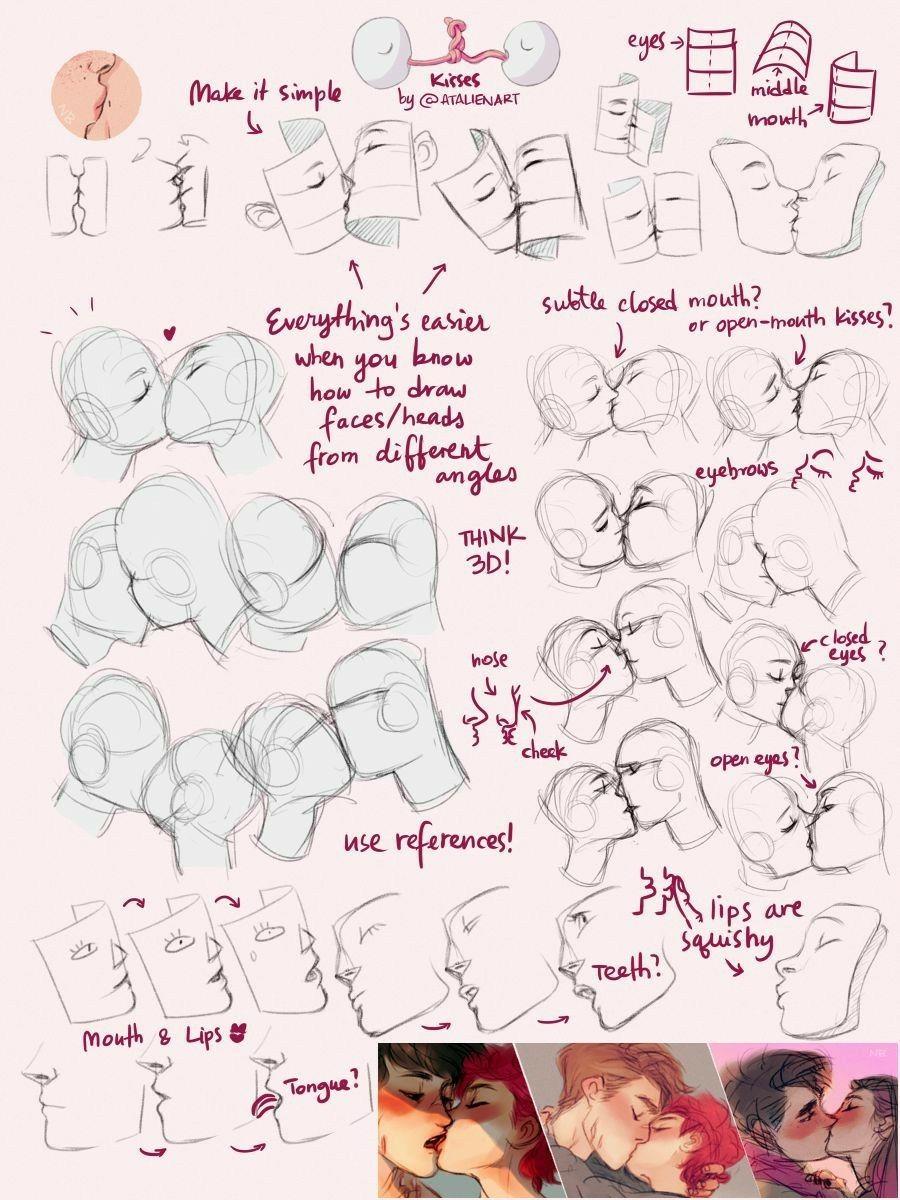 Kisses
by @ATALIENART
NB
Make it simple
eyes
middle
mouth
Everything's easier
when you know
how to draw
faces/heads
from different
angles
subtle closed mouth?
or open-mouth kisses?
eyebrows
THINK
3D!
closed
eyes ?
nose
cheek
open eyes?
use references!
lips are
squishy
Teeth?
Mouth & Lips
Tongue?
NB